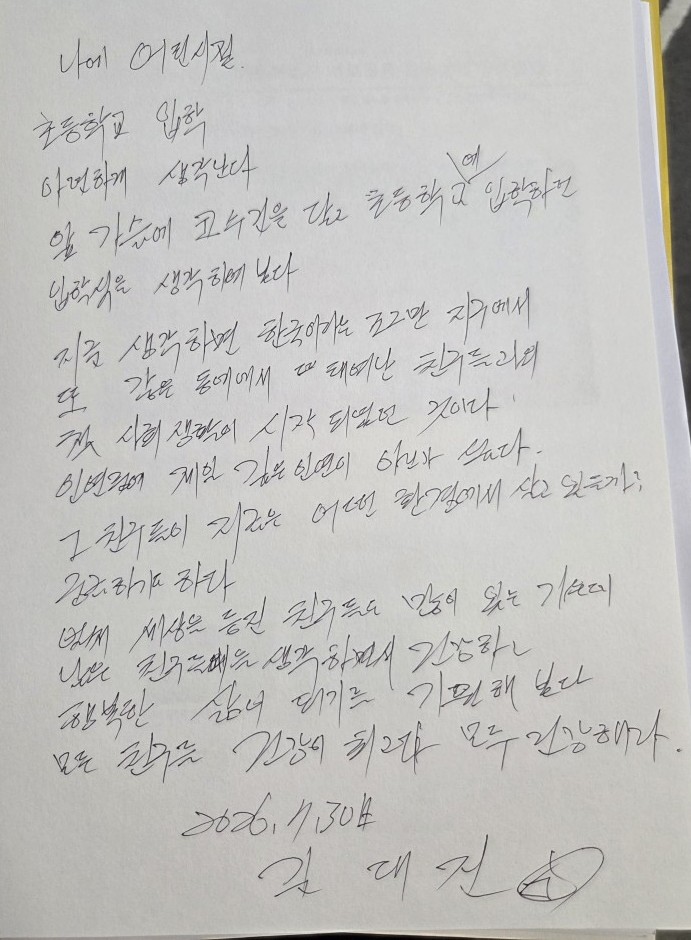 나에 어린시절.
초등학교 입학
아련하게 생각난다
예
앞 가슴에 코수건을 달고 초등학교 입학하던
입학식을 생각하여 본다
지금 생각하면 한국이라는 조그만 지구에서
또 같은 동에에서 태여난 친구들과의
첫 사회 생활이 시작 되였던 것이다.
인연점에 제일 깊은 인연이 아닌가 싶다.
그 친구들이 지금은 어떤 환경에서 살고 있을까?
궁금하기도 하다
벌써 세상을 등진 친구들도 많이 있는 가운데
남은 친구들에 생각하면서 건강하고
행복한 삶이 되기를 기원해 본다
모든 친구들 건강이 최고다 모두 건강해라.
2026. 7. 30日
김 대 진